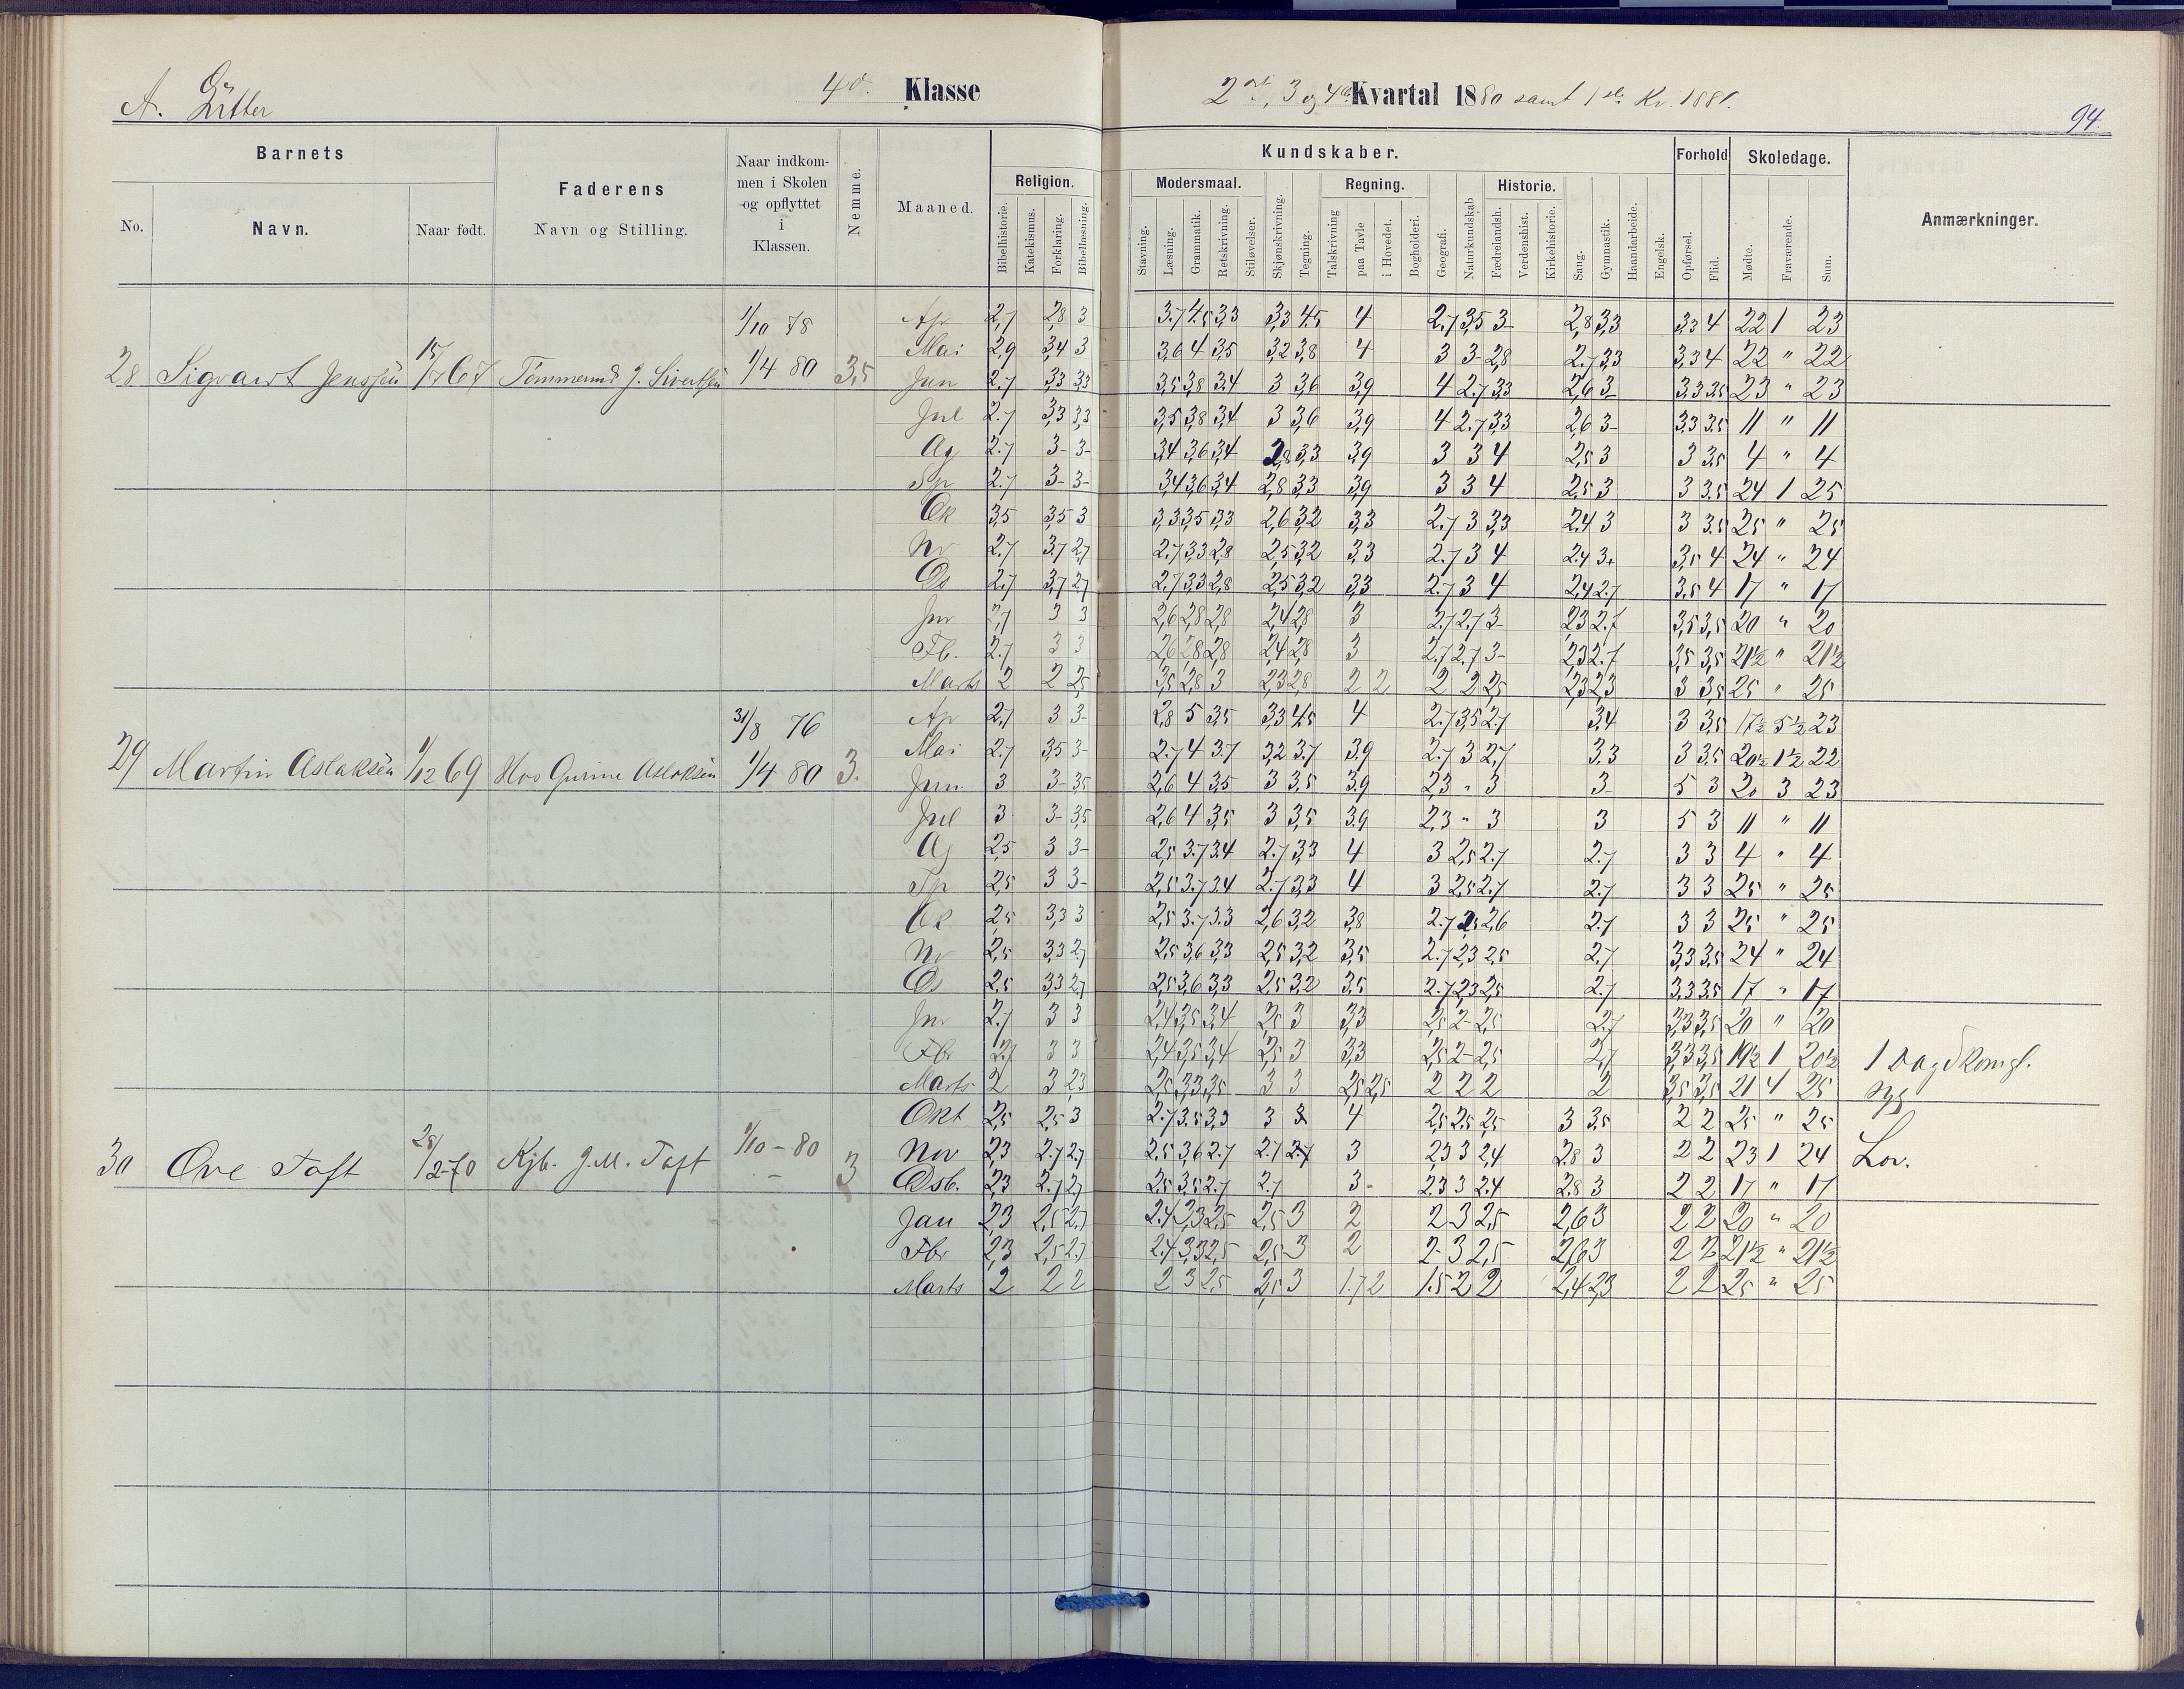 A. Gutter 4de Klasse 2det, 3 og 4de Kvartal 1880 samt 1ste Kv. 1881.
94.
Barnets Faderens Naar indkommen i Skolen og opflyttet i Klassen. Nemme. Maaned. Kundskaber. Forhold Skoledage. Anmærkninger.
No. Navn. Naar født. Navn og Stilling. Religion. Modersmaal. Regning. Historie.
Bibelhistorie. Katekismus. Forklaring. Bibellæsning. Stavning. Læsning. Grammatik. Retskrivning. Stiløvelser. Skjønskrivning. Tegning. Talskrivning paa Tavle i Hovedet. Bogholderi. Geografi. Naturkundskab Fædrelandsh. Verdenshist. Kirkehistorie. Sang. Gymnastik. Haandarbeide. Engelsk. Opførsel. Flid. Mødte. Fraværende. Sum.
1/10 78 Ap 2,7 2,8 3 3.7 4.5 3,3 3,3 4.5 4 2.7 3,5 3- 2,8 3,3 3,3 4 22 1 23
Mai 2,9 3,4 3 3,6 4 3,5 3,2 3,8 4 3 3- 2,8 2.7 3,3 3,3 4 22 " 22
28 Sigvart Jenssen 15/7 67 Tømmermd J. Sivertsen 1/4 80 3,5 Jun 2.7 3,3 3,3 3,5 3,8 3.4 3 3,6 3,9 4 2.7 3,3 2,6 3- 3,3 3.5 23 " 23
Jul 2.7 3,3 3,3 3,5 3,8 3,4 3 3,6 3,9 4 2.7 3,3 2,6 3- 3,3 3.5 11 " 11
Ag 2.7 3- 3- 3,4 3,6 3,4 2,8 3,3 3,9 3 3 4 2,5 3 3 3,5 4 " 4
Sp 2.7 3- 3- 3,4 3,6 3,4 2,8 3,3 3,9 3 3 4 2,5 3 3 3.5 24 1 25
Ok 3,5 3,5 3 3,3 3,5 3,3 2,6 3,2 3,3 2.7 3 3,3 2.4 3 3 3.5 25 " 25
Nv 2.7 3.7 2,7 2.7 3,3 2.8 2,5 3,2 3,3 2.7 3 4 2.4 3+ 3,5 4 24 " 24
Ds 2.7 3,7 2,7 2.7 3,3 2,8 2,5 3,2 3,3 2.7 3 4 2,4 2.7 3.5 4 17 " 17
Jnr 2,7 3 3 2,6 2,8 2,8 2,4 2,8 3 2.7 2.7 3- 2,3 2.7 3,5 3,5 20 " 20
Fb. 2.7 3 3 2,6 2,8 2,8 2,4 2,8 3 2.7 2.7 3- 2,3 2.7 3,5 3,5 21½ " 21½
Marts 2 2 2,5 3,5 2,8 3 2,3 2,8 2 2 2 2 2,5 2,3 2,3 3 3,5 25 " 25
31/8 76 Ap 2,7 3 3- 2,8 5 3,5 3,3 4.5 4 2.7 3,5 2.7 3,4 3 3,5 17½ 5½ 23
29 Martin Aslaksen 1/12 69 Hos Gurine Aslaksen 1/4 80 3. Mai 2.7 3,5 3- 2.7 4 3.7 3,2 3.7 3.9 2.7 3 2,7 3,3 3 3.5 20½ 1½ 22
Jun 3 3- 3,5 2,6 4 3,5 3 3.5 3.9 2,3 " 3 3- 5 3 20 3 23
Jul 3 3- 3,5 2,6 4 3,5 3 3,5 3.9 2,3 " 3 3 5 3 11 " 11
Ag 2,5 3 3- 2,5 3.7 3.4 2.7 3,3 4 3 2,5 2.7 2.7 3 3 4 " 4
Sp 2,5 3 3- 2,5 3.7 3.4 2.7 3,3 4 3 2,5 2.7 2.7 3 3 25 " 25
Ok 2,5 3,3 3 2,5 3.7 3.3 2,6 3,2 3,8 2.7 2,5 2,6 2.7 3 3 25 " 25
Nv 2,5 3,3 2,7 2,5 3,6 3,3 2,5 3,2 3,5 2.7 2,3 2,5 2,7 3,3 3,5 24 " 24
Ds 2,5 3,3 2,7 2,5 3,6 3,3 2,5 3,2 3,5 2.7 2,3 2,5 2.7 3,3 3,5 17 " 17
Jnr 2.7 3 3 2,4 3,5 3,4 2,5 3 3,3 2,5 2- 2,5 2.7 3,3 3,5 20 " 20
Fbr 2.7 3 3 2,4 3,5 3,4 2,5 3 3,3 2,5 2- 2,5 2,7 3,3 3,5 19½ 1 20½ 1 Dag
Marts 2 3 2,3 2,5 3,3 3,5 3 3 2,5 2,5 2 2 2 2 3,5 3,5 21 4 25 syg
Okt 2,5 2,5 3 2.7 3.5 3,3 3 4 2,5 2,5 2,5 3 3,5 2 2 25 " 25
30 Ove Toft 28/2-70 Kjb. J.M. Toft 1/10-80 3 Nov 2,3 2.7 2.7 2.5 3,6 2.7 2.7 2.7 3 2,3 3 2,4 2.8 3 2 2 23 1 24 Lov.
Dsb. 2,3 2.7 2.7 2,5 3,5 2.7 2.7 3- 2,3 3 2.4 2,8 3 2 2 17 " 17
Jan 2,3 2,5 2,7 2.4 3,3 2,5 2,5 3 2 2 3 2,5 2,6 3 2 2 20 " 20
Fbr 2,3 2,5 2.7 2.4 3,3 2,5 2,5 3 2 2- 3 2,5 2,6 3 2 2 21½ " 21½
Marts 2 2 2 2 3 2,5 2,5 3 1.7 2 1.5 2 2 2,4 2,3 2 2 25 " 25